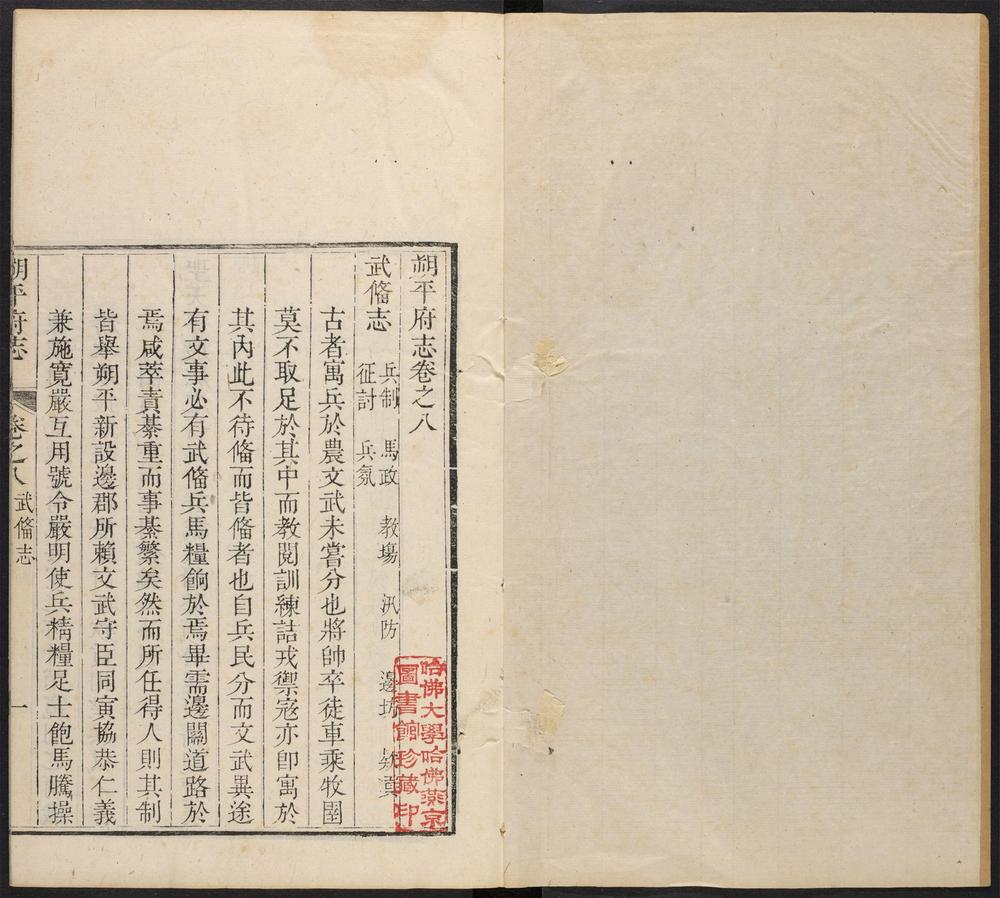 朔平府志卷之八
武俻志 兵制 馬政 教塲 汛防 邊
征討 兵氛
古者寓兵於農文武未嘗分也將帥卒徒車乘牧圉
莫不取足於其中而教閱訓練詰戎禦宼亦卽寓於
其內此不待俻而皆俻者也自兵民分而文武異途
有文事必有武俻兵馬糧餉於焉畢需邊關道路於
焉咸萃責綦重而事綦繁矣然而所任得人則其制
皆舉朔平新設邊郡所賴文武守臣同寅協恭仁義
兼施寬嚴互用號令嚴明使兵精糧足士飽馬騰操
朔平府志 卷之八 武俻志 一
哈佛大學哈佛燕京
圖書館珍藏印